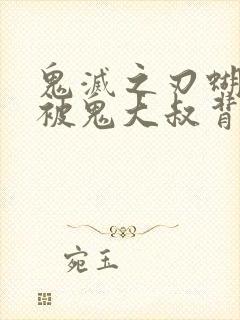 鬼滅之刃蝴
被鬼大叔背
宛玉